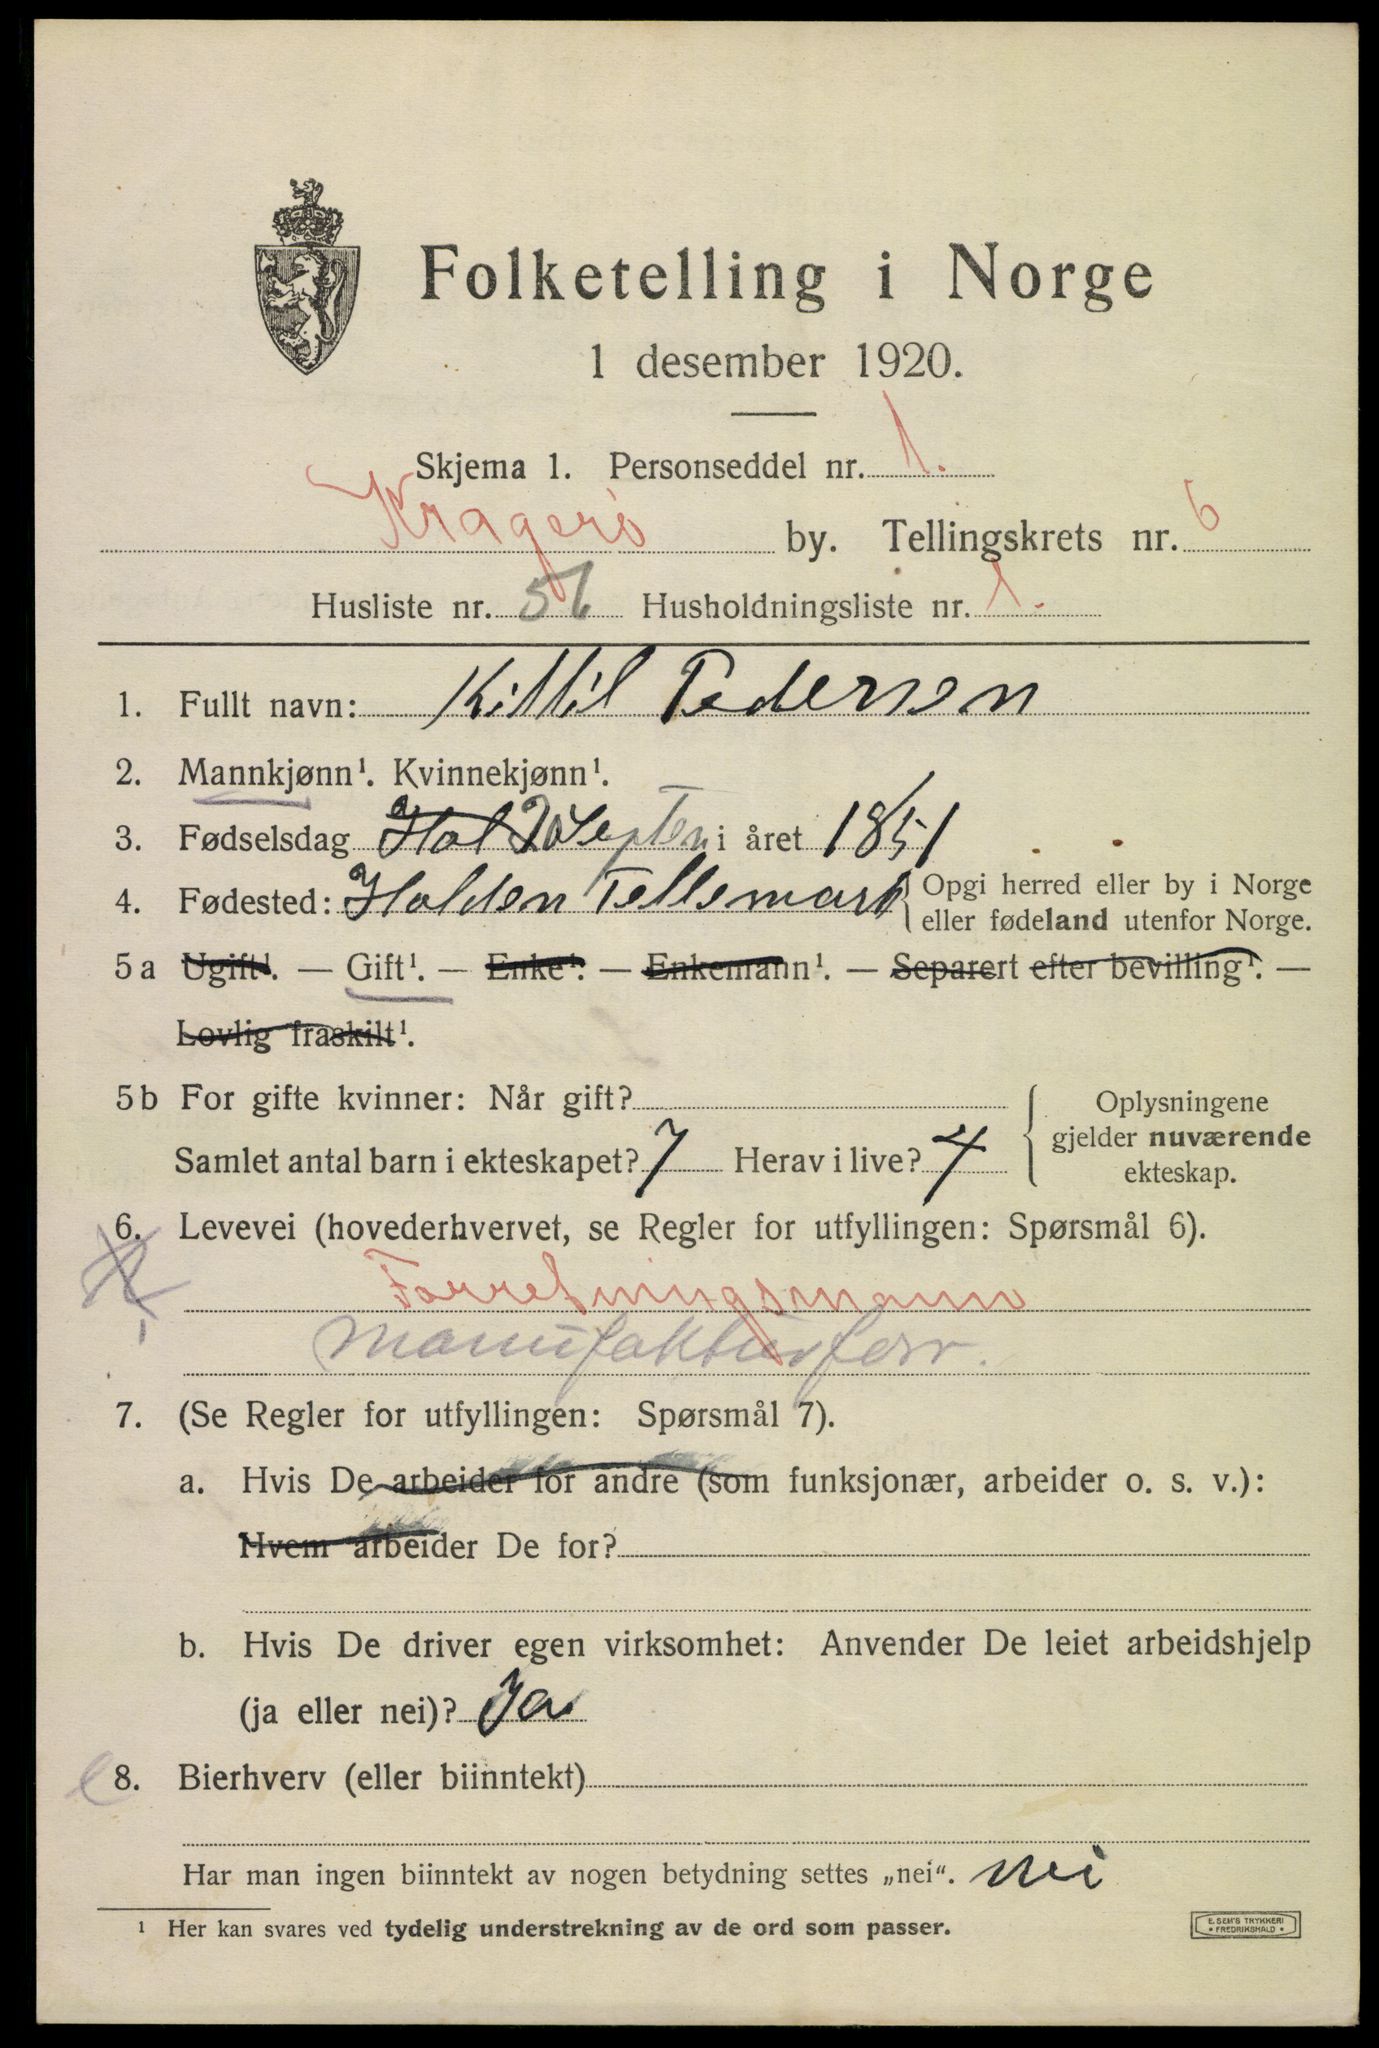 Folketelling i Norge
1 desember 1920.
Skjema 1. Personseddel nr. 1.
Kragerø by. Tellingskrets nr. 6
Husliste nr. 56 Husholdningsliste nr. 1.
1. Fullt navn: Kittil Pedersen
2. Mannkjønn¹. Kvinnekjønn¹.
3. Fødselsdag Hol 20 Septem i året 1851
4. Fødested: Holden Tellemark { Opgi herred eller by i Norge
eller fødeland utenfor Norge.
5 a Ugift¹. — Gift¹. — Enke¹. — Enkemann¹. — Separert efter bevilling¹. —
Lovlig fraskilt¹.
5 b For gifte kvinner: Når gift? { Oplysningene
gjelder nuværende
ekteskap.
Samlet antal barn i ekteskapet? 7 Herav i live? 4
6. Levevei (hovederhvervet, se Regler for utfyllingen: Spørsmål 6).
Forretningsmann
Manufakturforr.
7. (Se Regler for utfyllingen: Spørsmål 7).
a. Hvis De arbeider for andre (som funksjonær, arbeider o. s. v.):
Hvem arbeider De for?
b. Hvis De driver egen virksomhet: Anvender De leiet arbeidshjelp
(ja eller nei)? Ja
8. Bierhverv (eller biinntekt)
Har man ingen biinntekt av nogen betydning settes „nei". nei
¹ Her kan svares ved tydelig understrekning av de ord som passer.
E. SEM'S TRYKKERI
FREDRIKSHALD